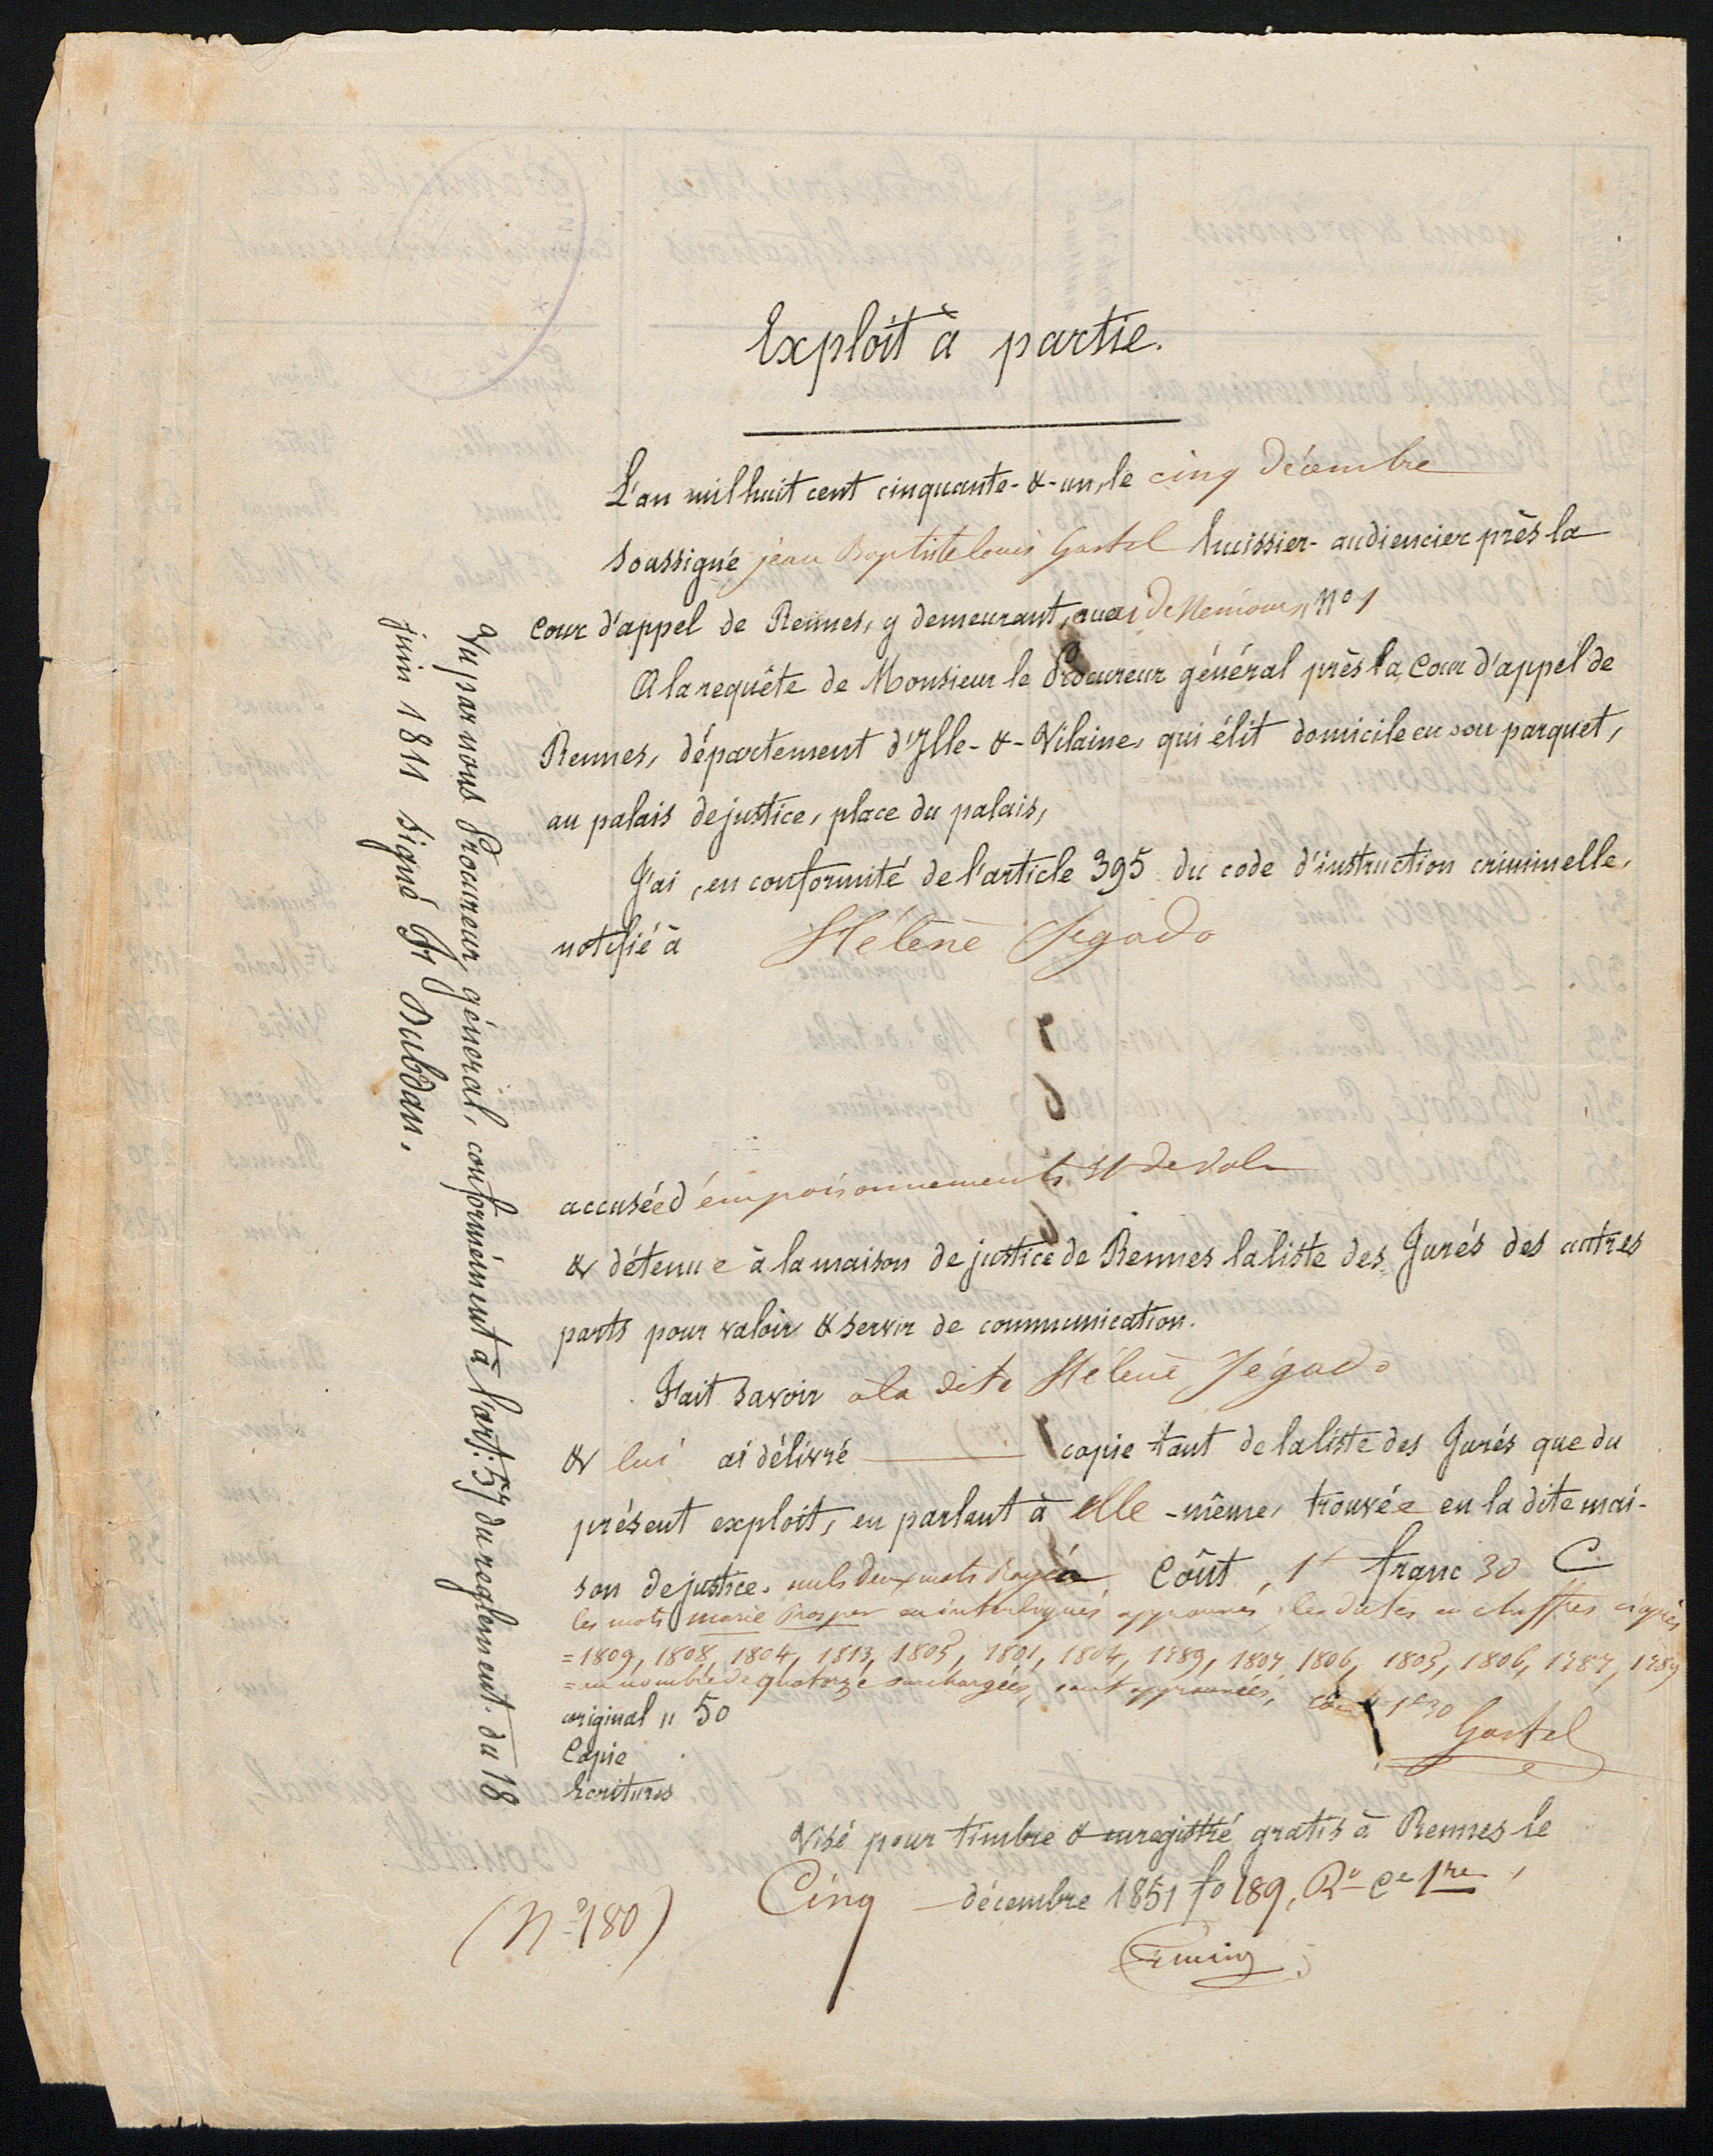 Exploit à partie.
L'an mil huit cent cinquante-&-un, le cinq décembre
soussigné jean Baptiste louis Gastel huissier-audiencier près la
cour d'appel de Rennes, y demeurant, quai de Nemours, No 1
A la requête de Monsieur le Procureur général près la Cour d'appel de
Rennes, département d'Ille-&-Vilaine, qui élit domicile en son parquet,
au palais de justice, place du palais,
J'ai, en conformité de l'article 395 du code d'instruction criminelle,
notifié à Hélène Jegado
accusée d'empoisonnements et de vols
& détenue à la maison de justice de Rennes la liste des Jurés des autres
parts pour valoir & servir de communication.
Fait savoir à la dite Hélène Jégado
& lui ai délivré copie tant de la liste des Jurés que du
présent exploit, en parlant à elle-même, trouvée en la dite mai-
son de justice. nuls deux mots rayés Coût, 1 franc 30 C
les mots marie Prosper en interlignes approuvés, les dates en chiffres ci après
=1809, 1808, 1804, 1813, 1805, 1801, 1804, 1789, 1807, 1806, 1805, 1806, 1787, 1789
= au nombre de quatorze surchargées, sont approuvées, 1f30
original " 50 Gastel
Copie
Ecritures
Visé pour timbre & enregistré gratis à Rennes le
Cinq décembre 1851 fo 189, Ro Ce 1re
(No 180)
Vu par nous Procureur général, conformément à l'art. 57 du reglement du 18
juin 1811 signé Fr Dubodan.